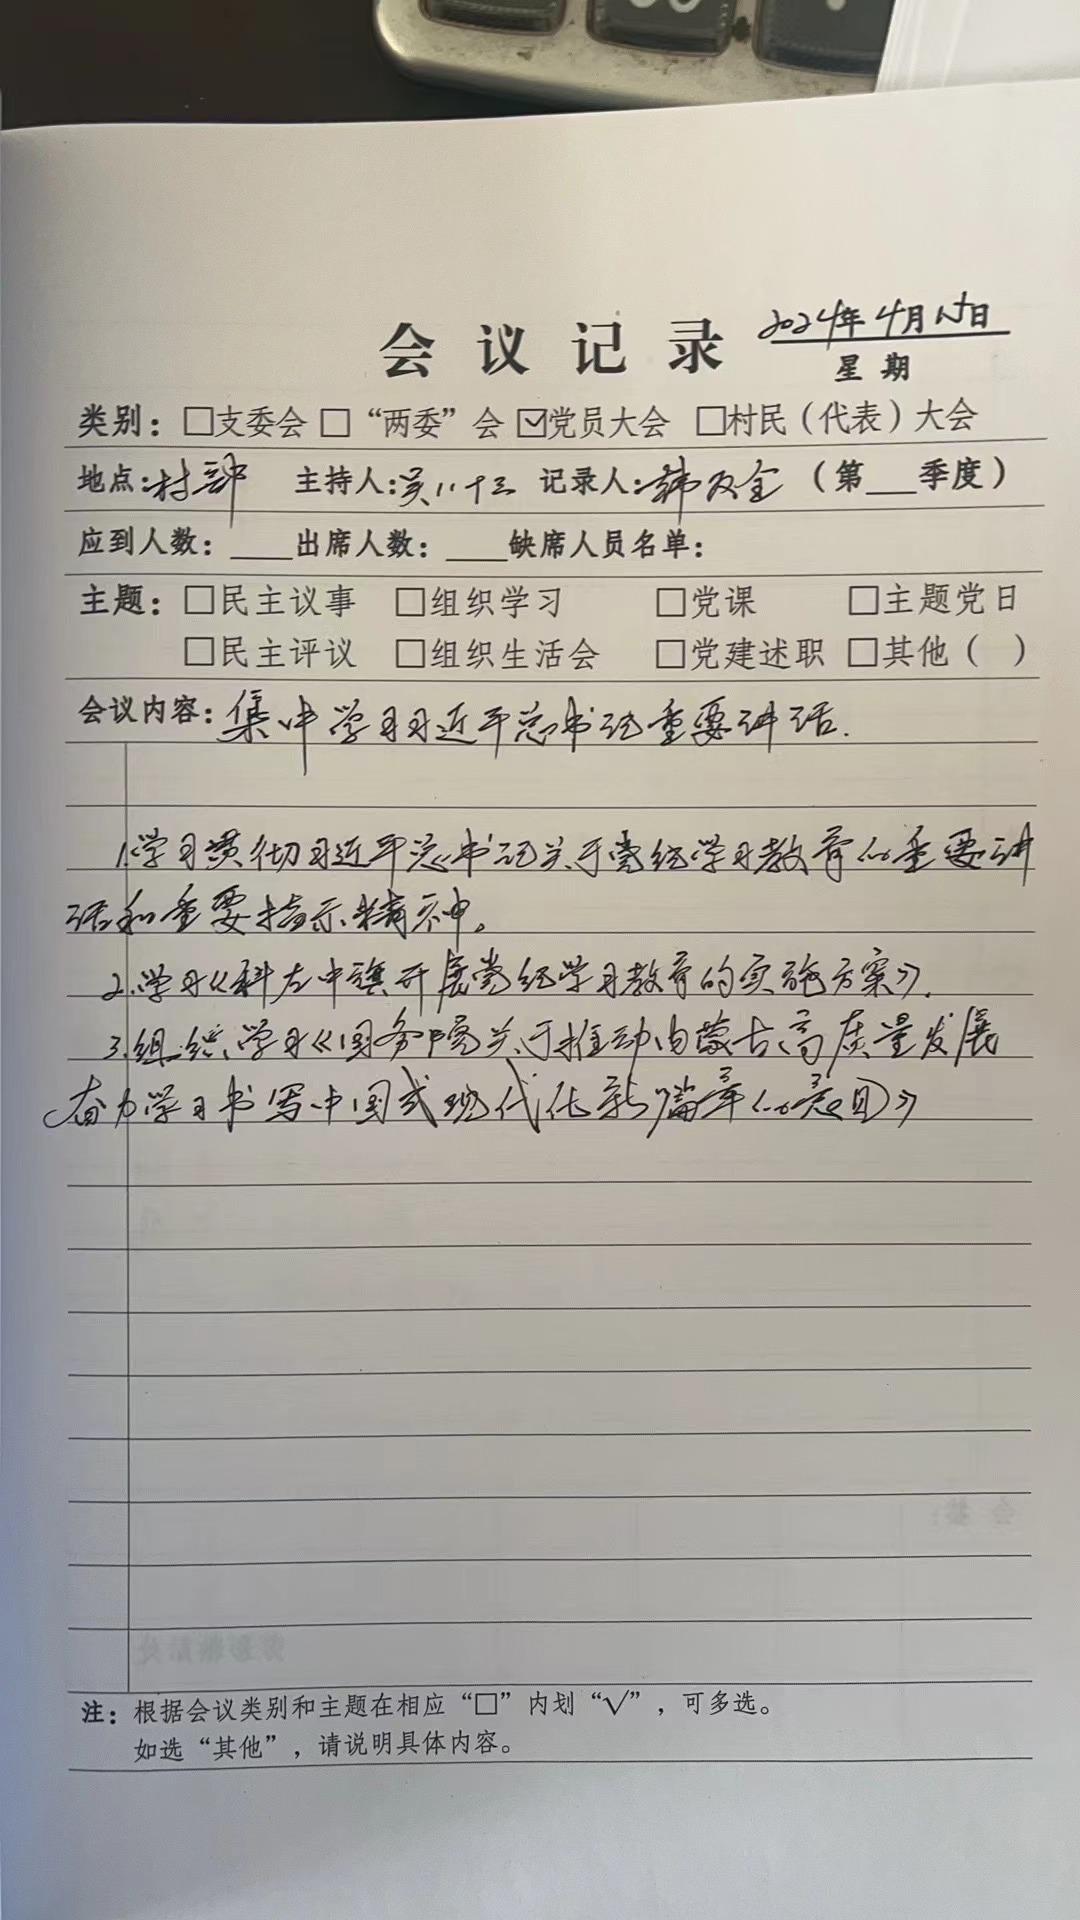 会议记录 2024年4月15日
星期
类别：□支委会 □“两委”会 ☑党员大会 □村民（代表）大会
地点：村部 主持人：吴八十三 记录人：韩反全（第___季度）
应到人数：____出席人数：____缺席人员名单：
主题：□民主议事 □组织学习 □党课 □主题党日
□民主评议 □组织生活会 □党建述职 □其他（ ）
会议内容：集中学习习近平总书记重要讲话.
1.学习贯彻习近平总书记关于党纪学习教育的重要讲
话和重要指示精神。
2.学习《科左中旗开展党纪学习教育的实施方案》.
3.组织学习《国务院关于推动内蒙古高质量发展
奋力学习书写中国式现代化新篇章的意见》
注：根据会议类别和主题在相应“□”内划“√”，可多选。
如选“其他”，请说明具体内容。